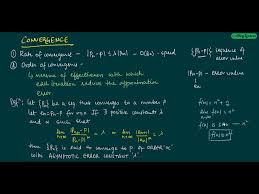 CONVERGENCE
① Rate of convergence - |Pn-P| ≤ λ|αn| - O(αn) - speed
② Order of convergence -
↳ means of effectiveness with which
each iteration reduces the approximation
error
{Pn-P} sequence of
error value
|Pn-P| - error value
Defⁿ: Let {Pn} be a seq that converges to a number p
let en = Pn-P for n≥0 If ∃ positive constant λ
and α such that
lim |Pn+1-P| / |Pn-P|^α = λ = lim |en+1| / |en|^α = λ
then {Pn} is said to converge to p of ORDER 'α'
with ASYMPTOTIC ERROR CONSTANT 'λ'